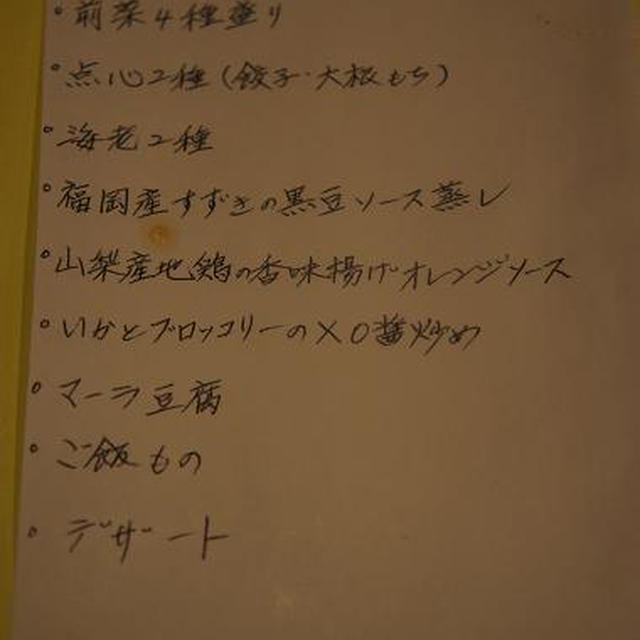 ・前菜4種盛り
・点心2種(餃子・大根もち)
・海老2種
・福岡産すずきの黒豆ソース蒸し
・山梨産地鶏の香味揚げオレンジソース
・いかとブロッコリーのXO醤炒め
・マーラ豆腐
・ご飯もの
・デザート